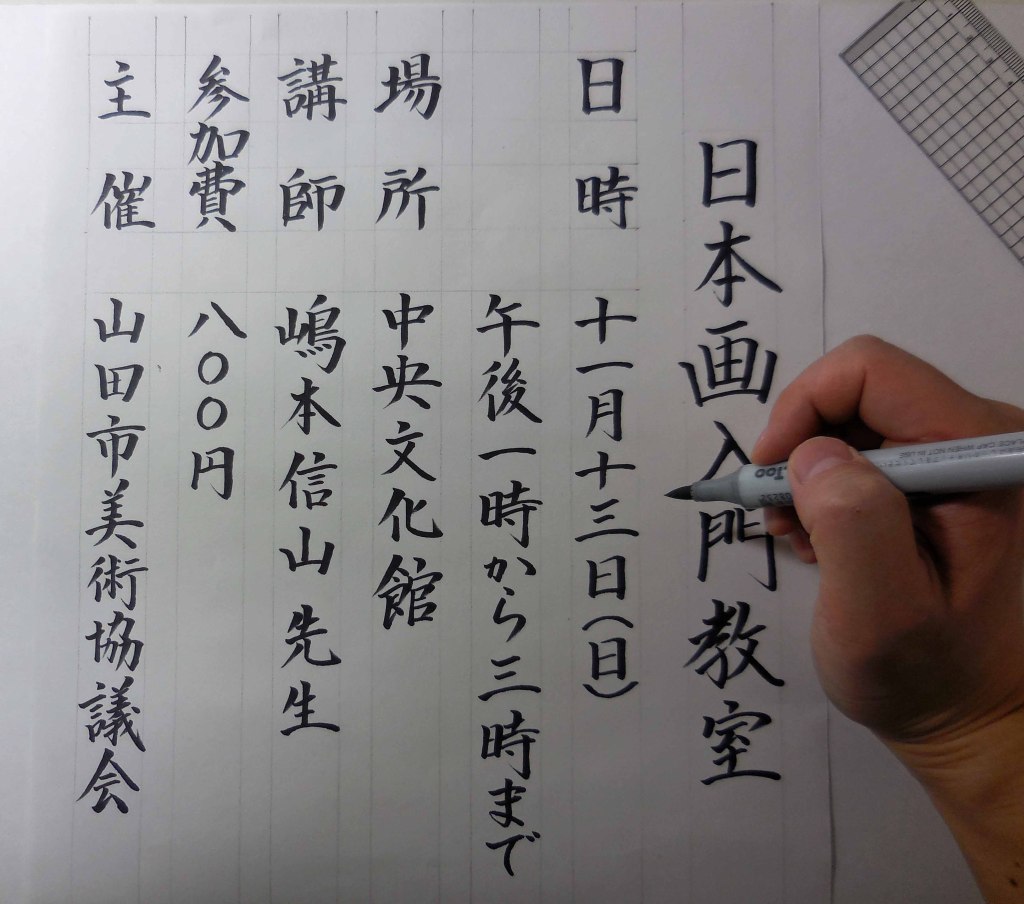 日本画入門教室
日時 十一月十三日(日)
午後一時から三時まで
場所 中央文化館
講師 嶋本信山先生
参加費 八〇〇円
主催 山田市美術協議会
Too